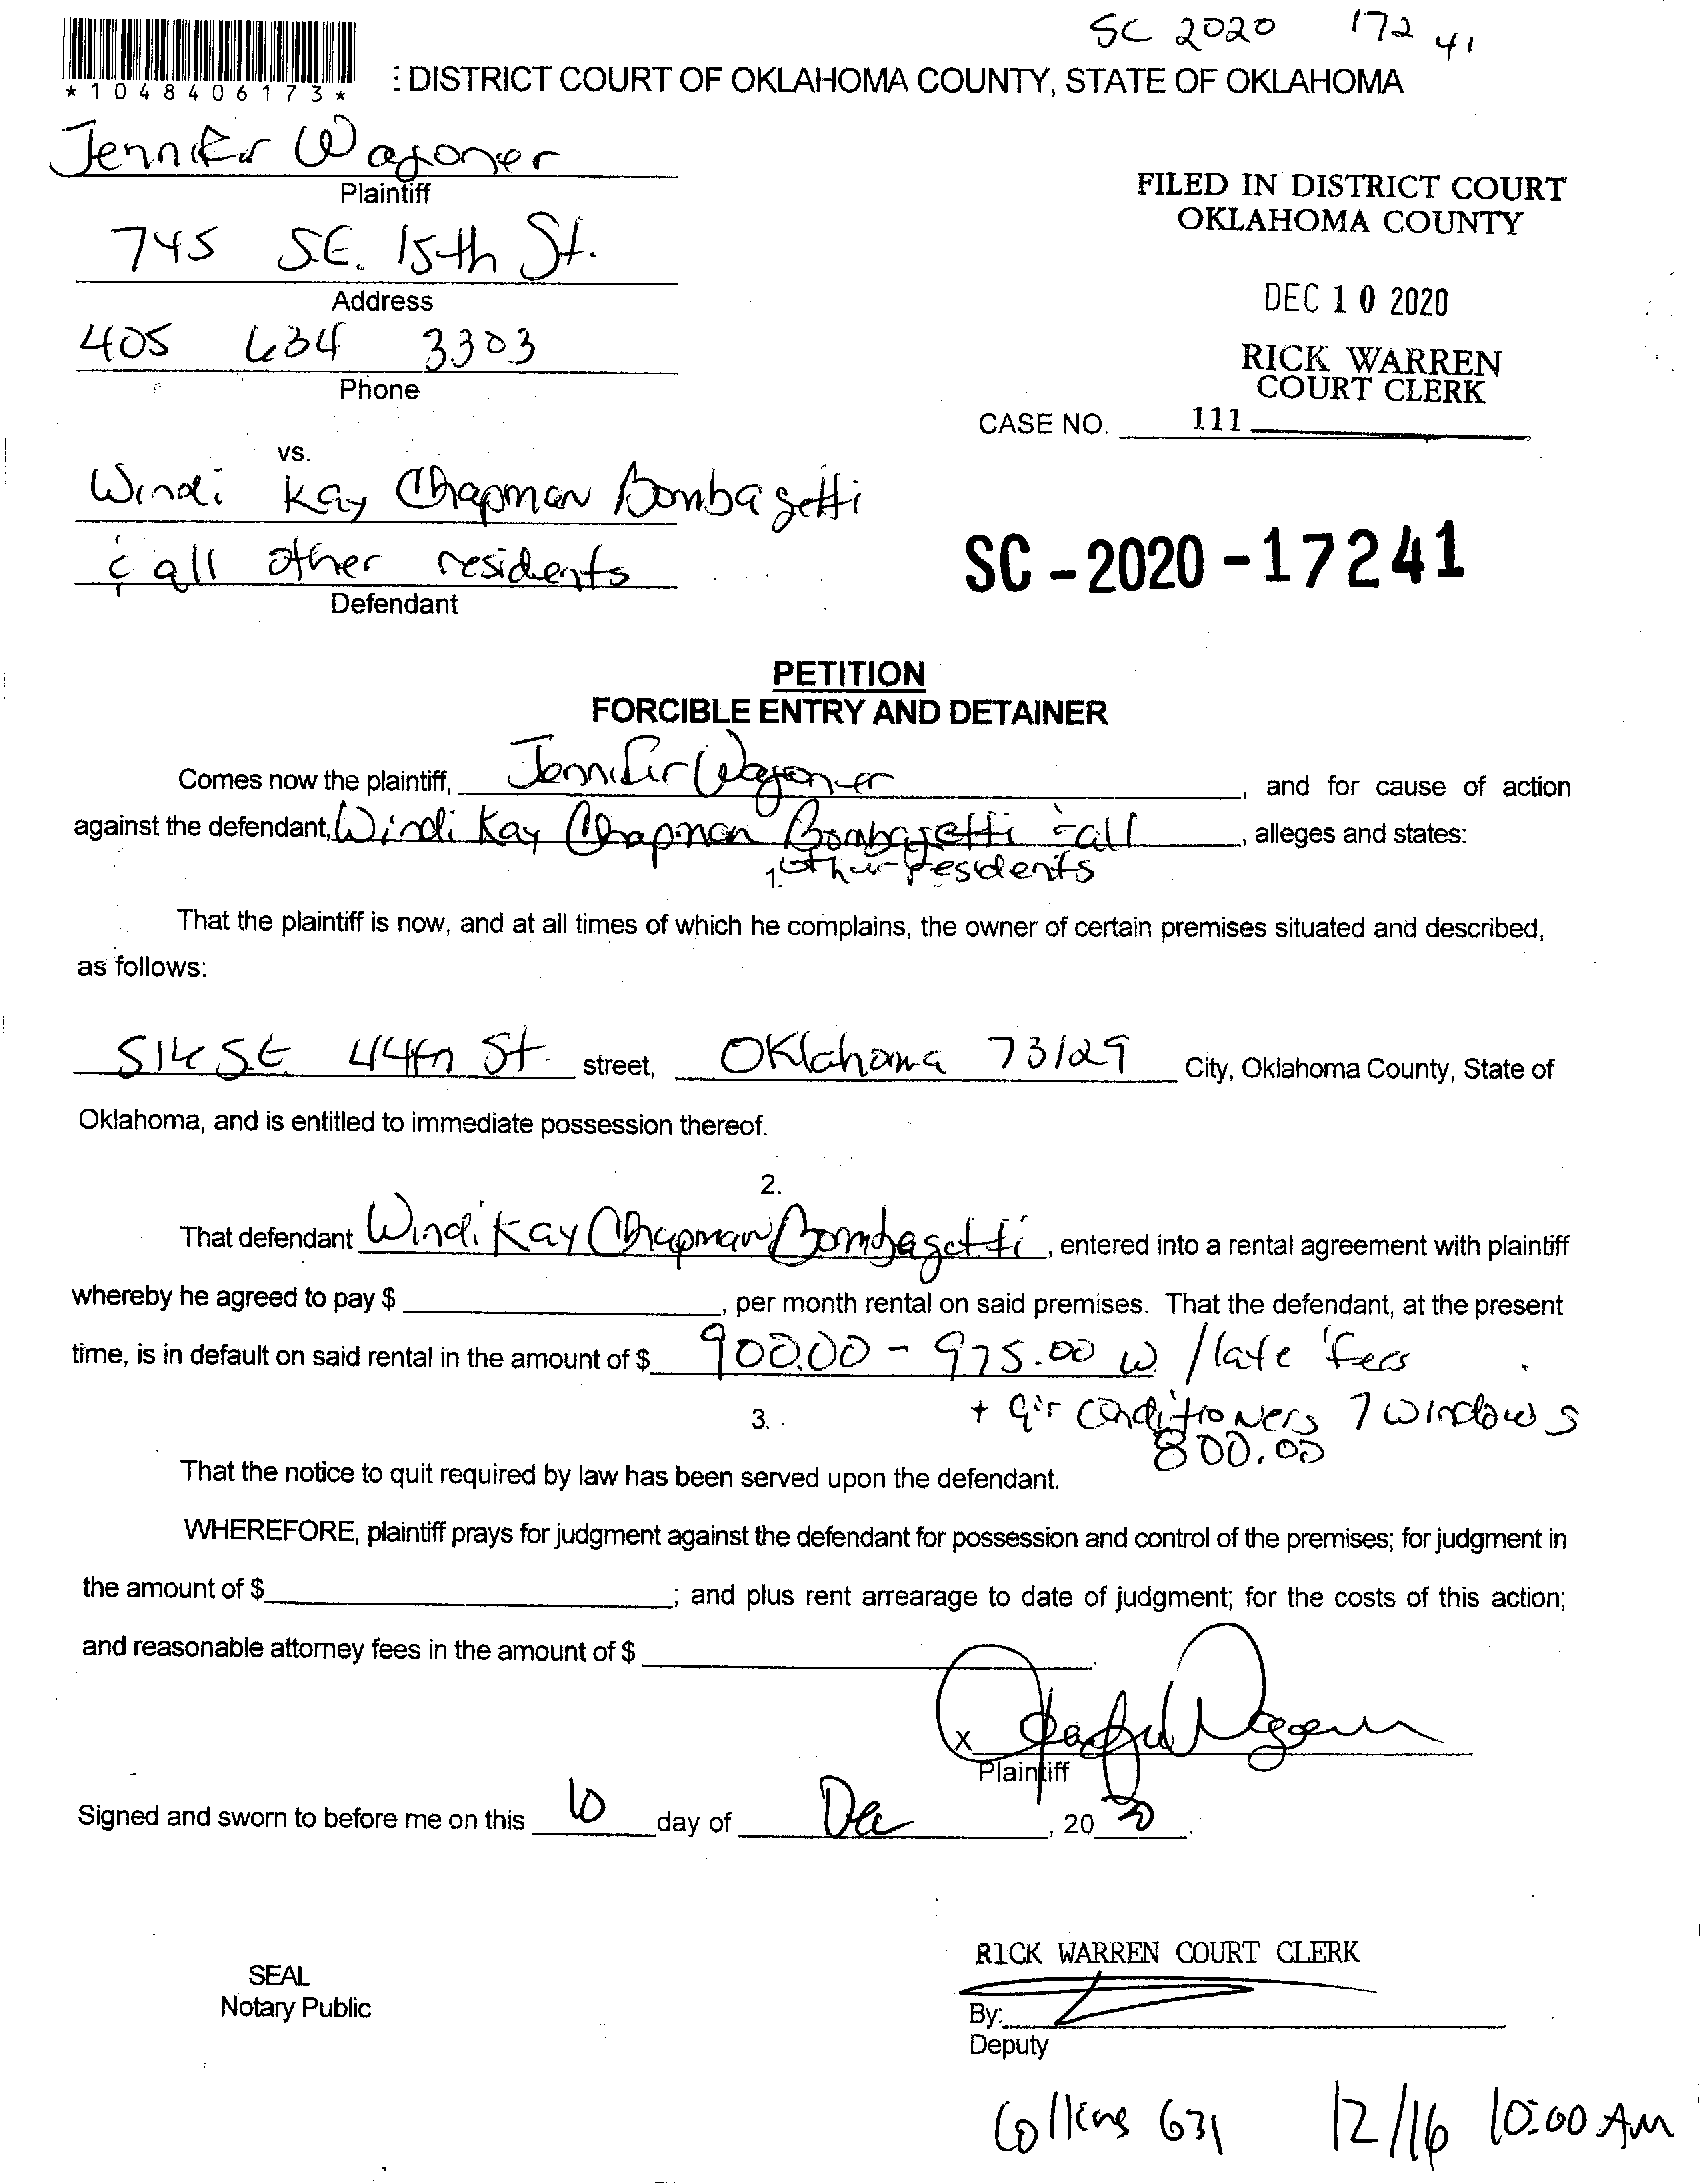 SC 2020 172 41
*1048406173*
: DISTRICT COURT OF OKLAHOMA COUNTY, STATE OF OKLAHOMA
Jennifer Wagoner
Plaintiff
FILED IN DISTRICT COURT
OKLAHOMA COUNTY
745 S.E. 15th St.
Address
DEC 10 2020
405 634 3303
Phone
RICK WARREN
COURT CLERK
CASE NO. 111
vs.
Windi Kay Chapman Bombagetti
& all other residents
Defendant
SC-2020-17241
PETITION
FORCIBLE ENTRY AND DETAINER
Comes now the plaintiff, Jennifer Wagoner, and for cause of action
against the defendant, Windi Kay Chapman Bombagetti & all, alleges and states:
1. other residents
That the plaintiff is now, and at all times of which he complains, the owner of certain premises situated and described,
as follows:
516 SE 44th St. street, Oklahoma 73129 City, Oklahoma County, State of
Oklahoma, and is entitled to immediate possession thereof.
2.
That defendant Windi Kay Chapman Bombagetti, entered into a rental agreement with plaintiff
whereby he agreed to pay $ , per month rental on said premises. That the defendant, at the present
time, is in default on said rental in the amount of $ 900.00 - 975.00 w/late fees
3. + air conditioners 7 windows
800.00
That the notice to quit required by law has been served upon the defendant.
WHEREFORE, plaintiff prays for judgment against the defendant for possession and control of the premises; for judgment in
the amount of $ ; and plus rent arrearage to date of judgment; for the costs of this action;
and reasonable attorney fees in the amount of $ .
x Jennifer Wagoner
Plaintiff
Signed and sworn to before me on this 10 day of Dec, 20 20.
RICK WARREN COURT CLERK
SEAL
Notary Public
By:
Deputy
Collins 631 12/16 10:00 AM